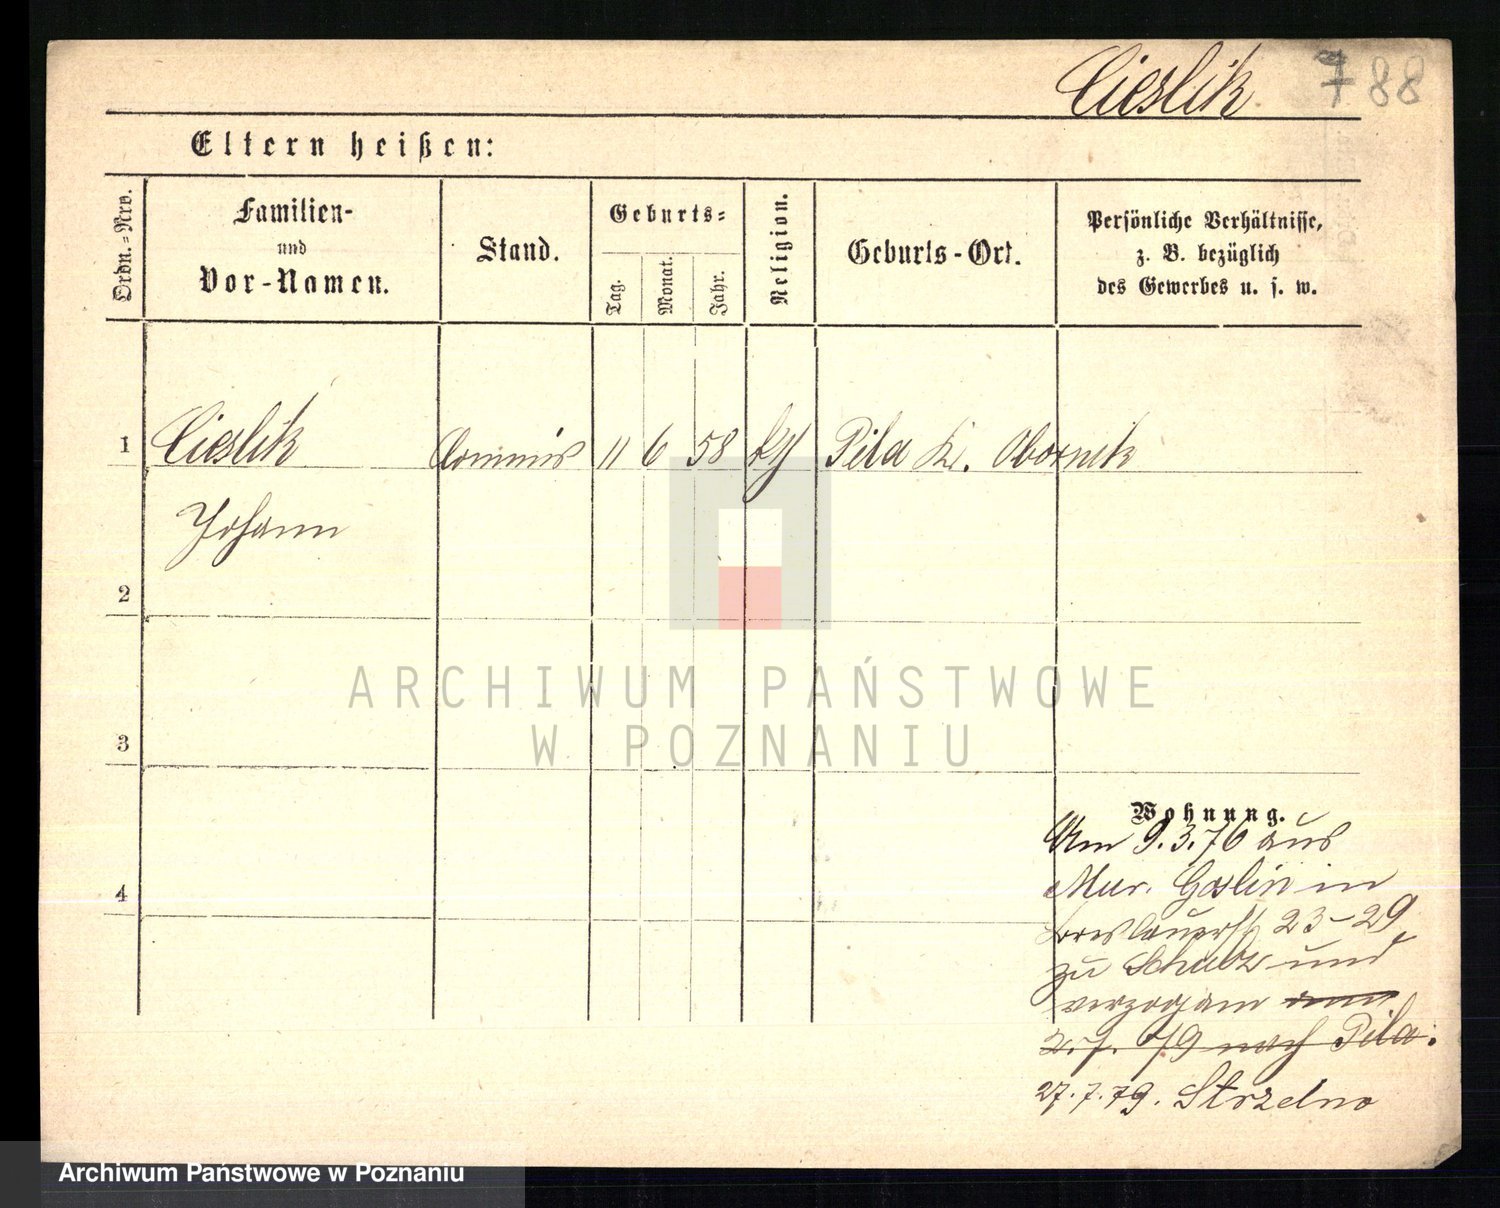 Cieslik 788
Eltern heißen:
Ordn.=Nro.
Familien-
und
Vor-Namen.
Stand.
Geburts=
Tag.
Monat.
Jahr.
Religion.
Geburts-Ort.
Persönliche Verhältnisse,
z. B. bezüglich
des Gewerbes u. s. w.
1 Cieslik Commis 11 6 58 kth Pila Kr. Obornik
Johann
2
3
4
Wohnung.
Am 9.3.76 aus
Mur. Goslin in
Breslauerst 23-29
zu Schulz und
verzogam am
2.7. 79 nach Pila.
27.7.79. Strzelno
ARCHIWUM PAŃSTWOWE
W POZNANIU
Archiwum Państwowe w Poznaniu